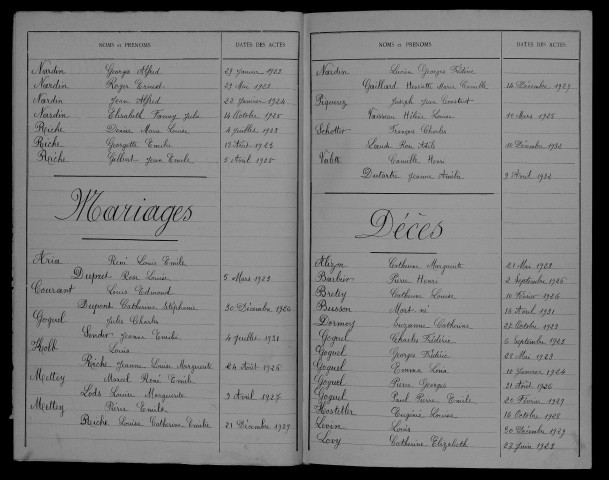 NOMS et PRÉNOMS DATES DES ACTES
Nardin Georges Alfred 29 Janvier 1923
Nardin Roger Ernest 29 Mai 1923
Nardin Jean Alfred 22 Janvier 1924
Nardin Elisabeth Fanny Julie 14 Octobre 1925
Reiche Denise Marie Louise 4 Juillet 1923
Reiche Georgette Emilie 17 Août 1923
Reiche Gilbert Jean Emile 5 Avril 1925
Mariages
Aria René Louis Emile
Dupret Rose Louise 5 Mars 1923
Courant Louis Edmond
Dupont Catherine Stéphanie 30 Décembre 1926
Goguel Jules Charles
Sender Jeanne Emilie 4 Juillet 1931
Louis
Reiche Jeanne Louise Marguerite 24 Août 1926
Mettey Marcel René Emile
Lods Louise Marguerite 9 Avril 1927
Mettey Pierre Emile
Reiche Louise Catherine Emilie 21 Décembre 1929
NOMS et PRÉNOMS DATES DES ACTES
Nardin Lucien Georges Frédéric
Gaillard Henriette Marie Camille 14 Décembre 1929
Piqueur Joseph Jean Constant
Hélène Louise 10 Mars 1925
Schotter François Charles
10 Décembre 1932
Valette Camille Henri
Dutartre Jeanne Amélie 9 Avril 1932
Décès
Alizon Catherine Marguerite 21 Mai 1923
Barbier Pierre Henri 2 Septembre 1926
Bretey Catherine Louise 10 Février 1926
Buisson Mort né 16 Avril 1931
Dormoy Suzanne Catherine 27 Octobre 1923
Goguel Charles Frédéric 6 Septembre 1923
Goguel Georges Frédéric 28 Mai 1923
Goguel Emma Léna 10 Janvier 1924
Goguel Pierre Georges 31 Août 1926
Goguel Paul Pierre Emile 20 Février 1929
Hostetter Eugénie Louise 16 Octobre 1925
Levin Louis 30 Décembre 1929
Lovy Catherine Elizabeth 22 Juin 1923